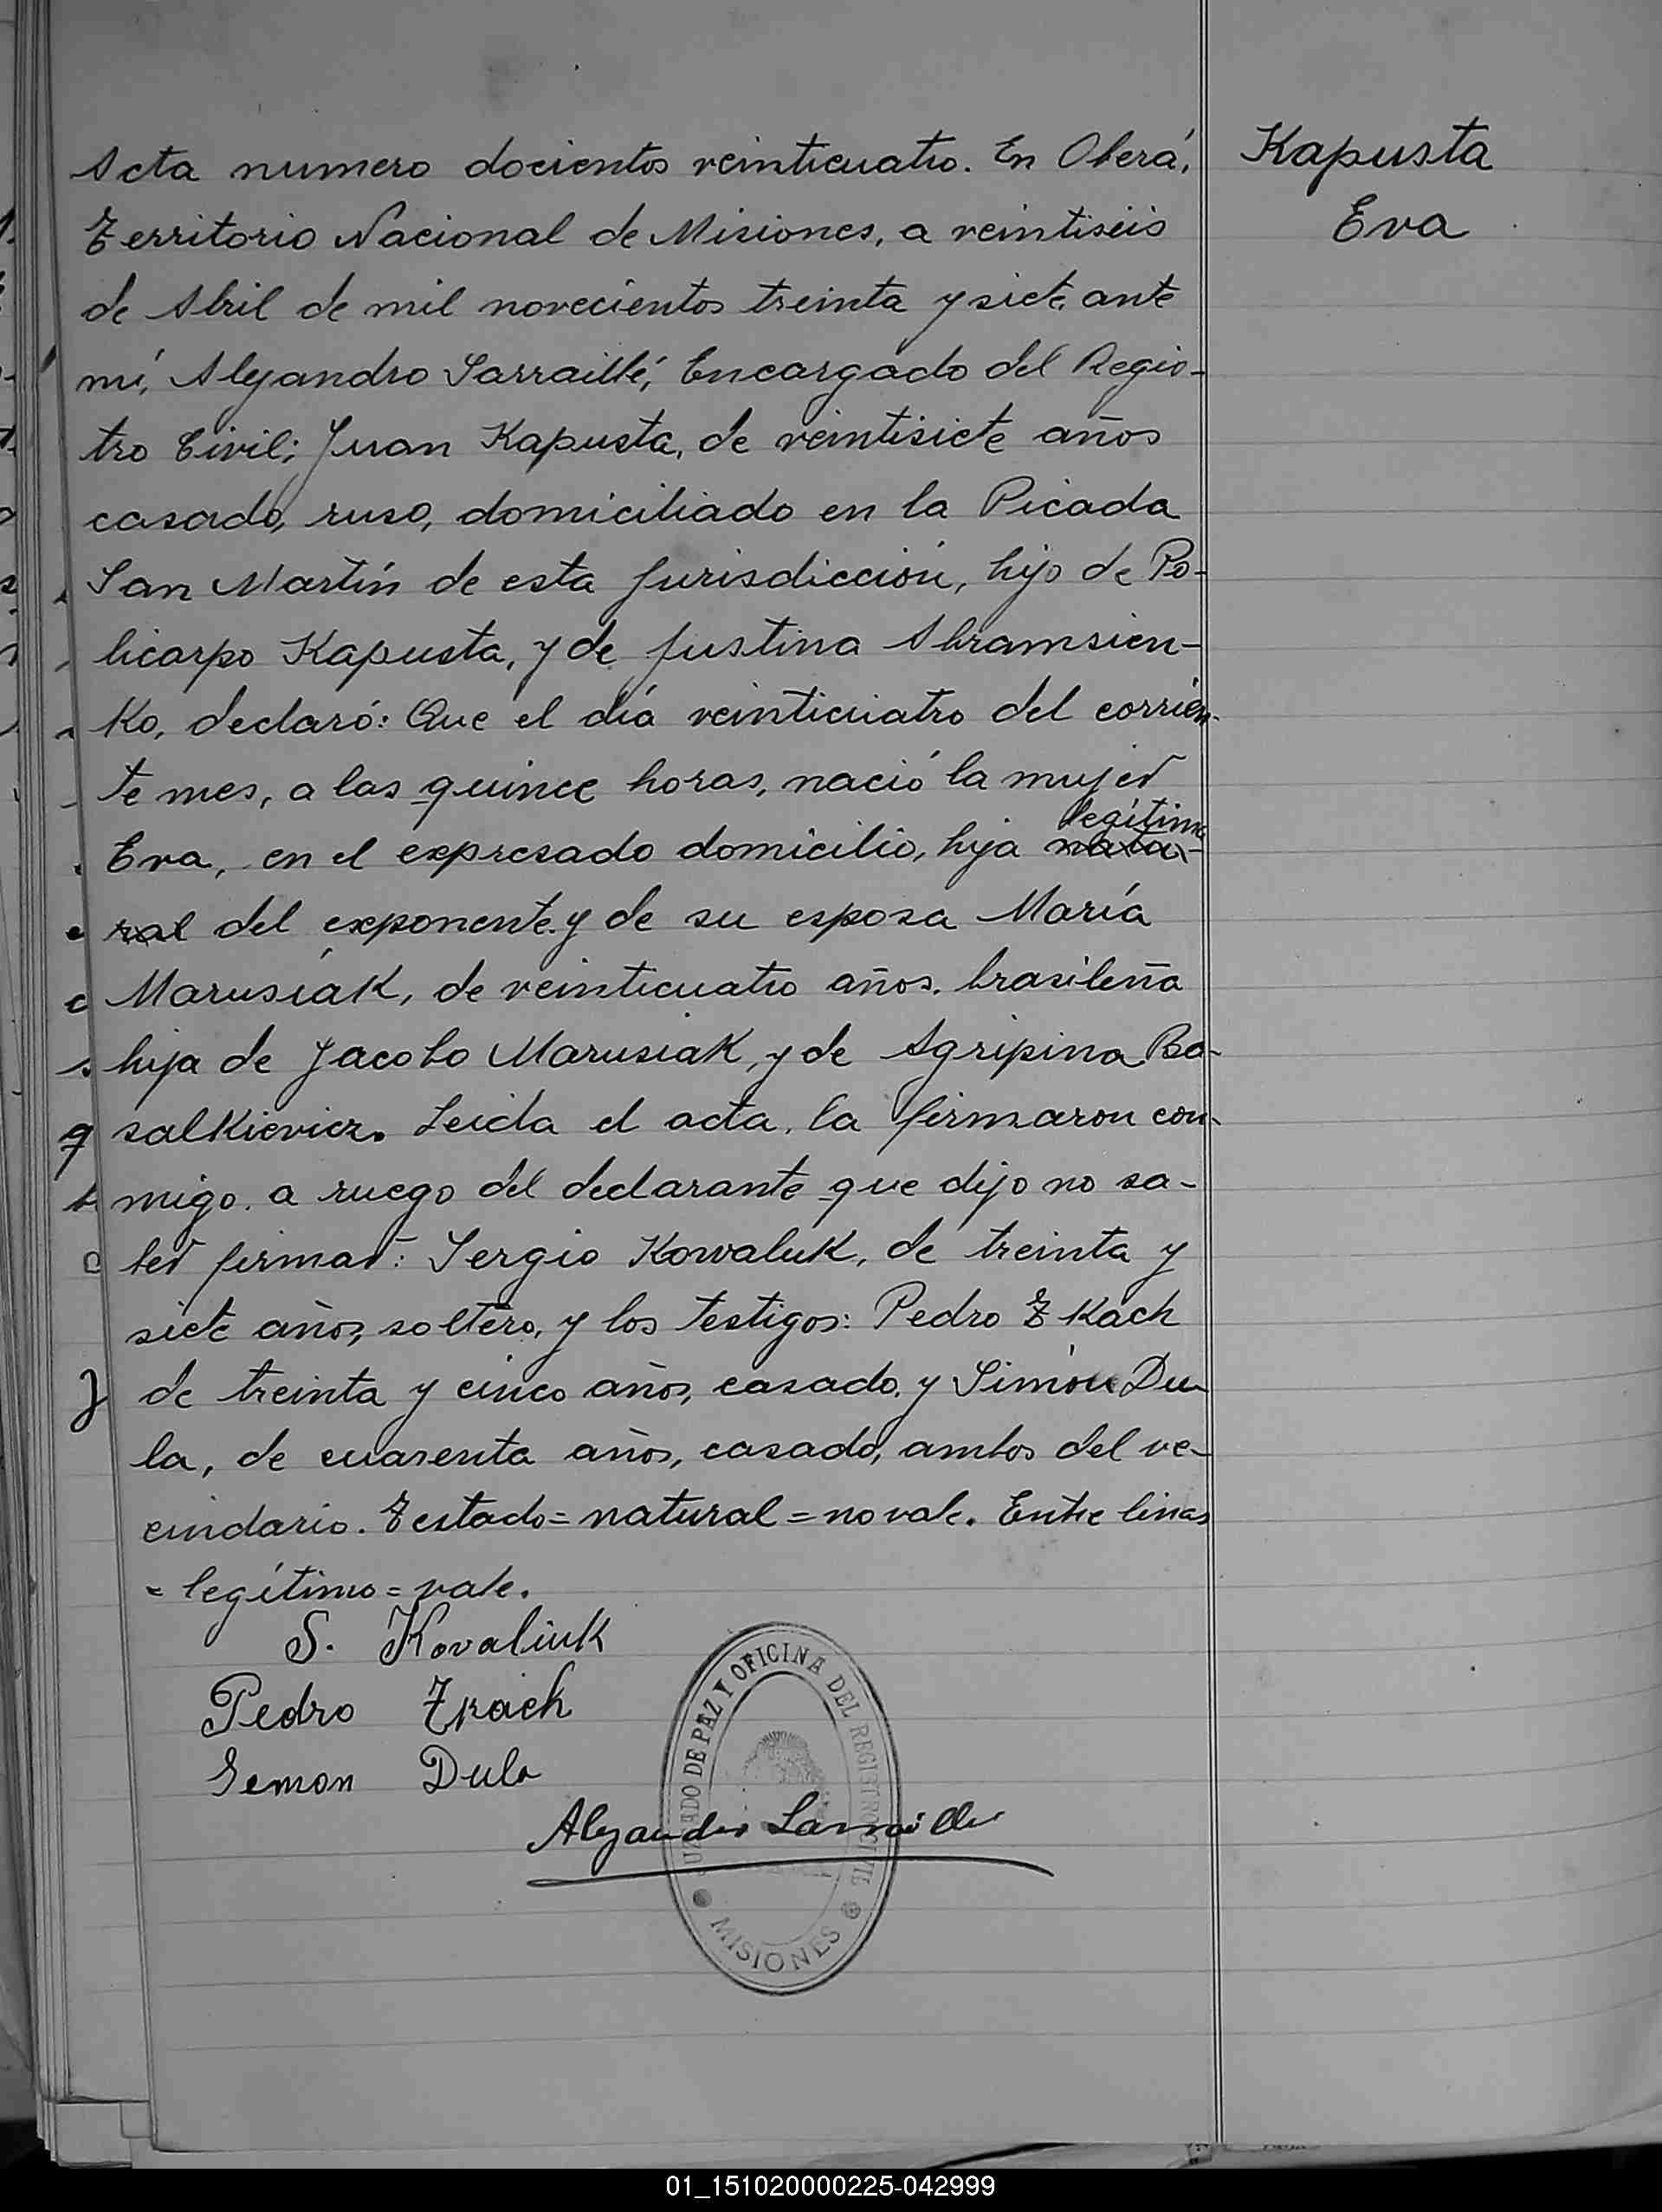 Acta numero docientos veinticuatro. En Oberá,
Territorio Nacional de Misiones, a veintiseis
de Abril de mil novecientos treinta y siete ante
mí, Alejandro Sarraillé, Encargado del Regis-
tro Civil; Juan Kapusta, de veintisiete años
casado, ruso, domiciliado en la Picada
San Martín de esta jurisdicción, hijo de Po-
licarpo Kapusta, y de Justina Abramsien-
Ko, declaró: Que el día veinticuatro del corrien-
te mes, a las quince horas, nació la mujer
legítima
Eva, en el expresado domicilio, hija natu-
ral del exponente y de su esposa María
Marusiak, de veinticuatro años, brasileña
hija de Jacobo Marusiak, y de Agripina Bo-
salkievicz. Leida el acta, la firmaron con-
migo, a ruego del declarante que dijo no sa-
ber firmar: Sergio Kowaluk, de treinta y
siete años, soltero, y los testigos: Pedro Tkach
de treinta y cinco años, casado, y Simón Du-
la, de cuarenta años, casado, ambos del ve-
cindario. Testado=natural=no vale. Entre lineas
=legítimo=vale.
S. Kovaliuk
Pedro Tkach
Semon Dula
Alejandro Sarraille
JUZGADO DE PAZ Y OFICINA DEL REGISTRO CIVIL
MISIONES
Kapusta
Eva
01_151020000225-042999